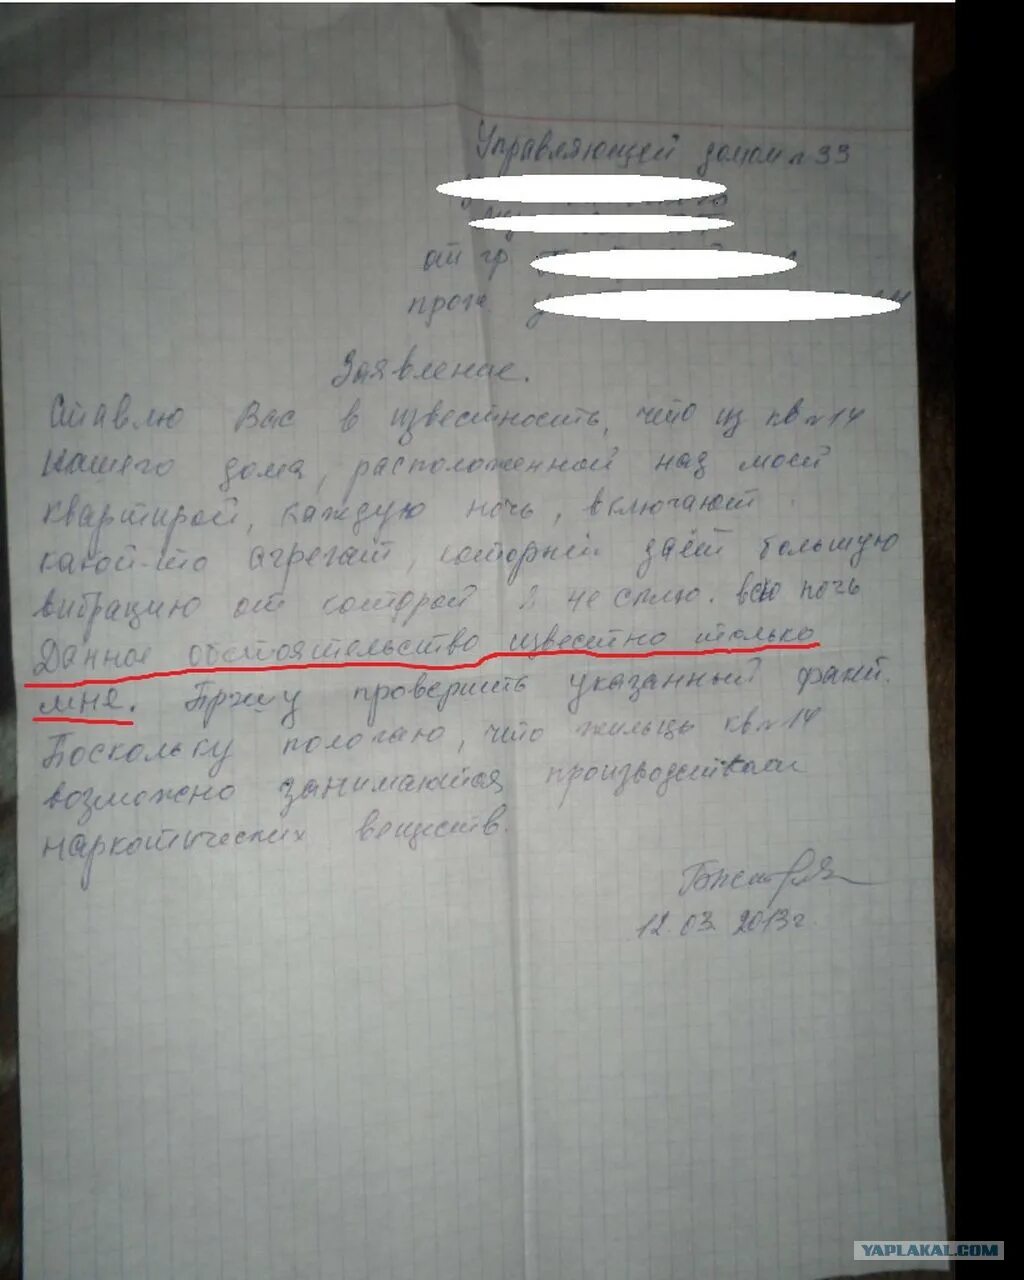 Управляющей домом №33
от гр.
прож.
Заявление.
Ставлю Вас в известность, что из кв №14
нашего дома, расположенной над моей
квартирой, каждую ночь, включают
какой-то агрегат, который даёт большую
вибрацию от которой я не сплю. всю ночь
Данное обстоятельство известно только
мне. Прошу проверить указанный факт.
Поскольку полагаю, что жильцы кв №14
возможно занимаются производством
наркотических веществ.
12.03.2013г.
YAPLAKAL.COM